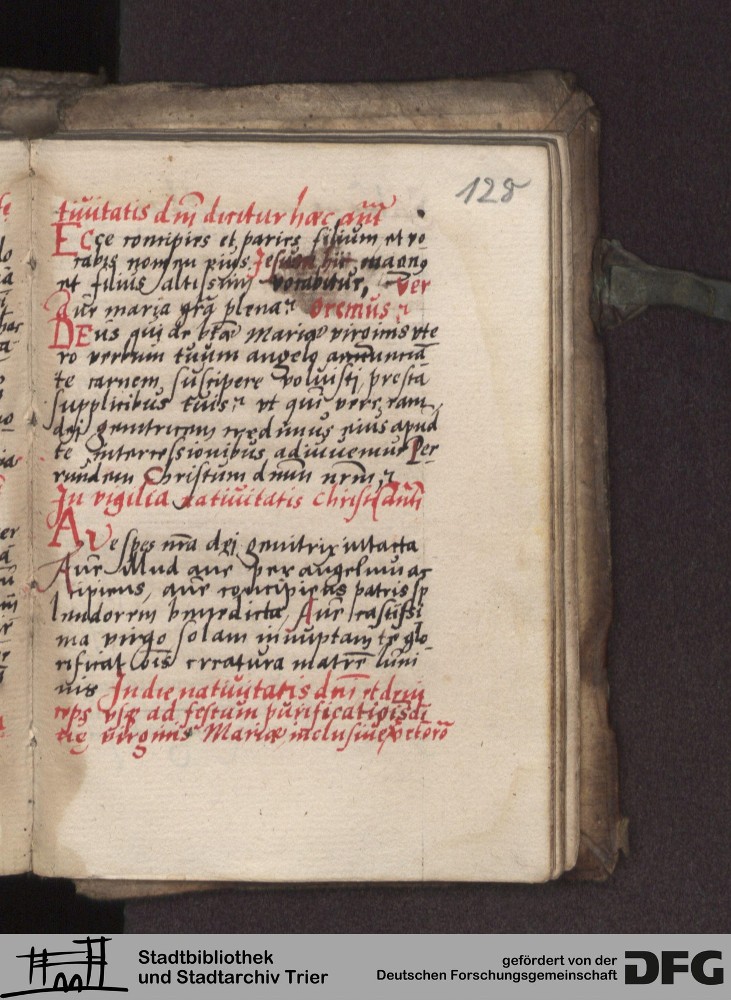 128
tiuitatis dni dicitur hæc añt
ECce concipies et paries filium et vo
cabis nomen eius Jesum hic magnꝰ
et filius altissimi vocabitur, Ver
Aue maria grã plena Oremus
DEus qui de btæ Mariæ virginis vte
ro verbum tuum angelo annunciã
te carnem suscipere voluisti, presta
supplicibus tuis vt qui vere eam
dei genitricem credimus eius apud
te intercessionibus adiuuemur Per
eundem Christum dnm nrm
In vigilia natiuitatis Christi añt
AVe spes nra dei genitrix intacta
Aue illud aue per angelum ac
cipiens, aue concipiens patris sp
lendorem benedicta, Aue castissi
ma virgo solam innuptam te glo
rificat ois creatura matrẽ lumi
nis In die natiuitatis dni et dein
ceps vsq ad festum purificationis
virginis Mariæ inclusiue
Stadtbibliothek
und Stadtarchiv Trier
gefördert von der
Deutschen Forschungsgemeinschaft
DFG